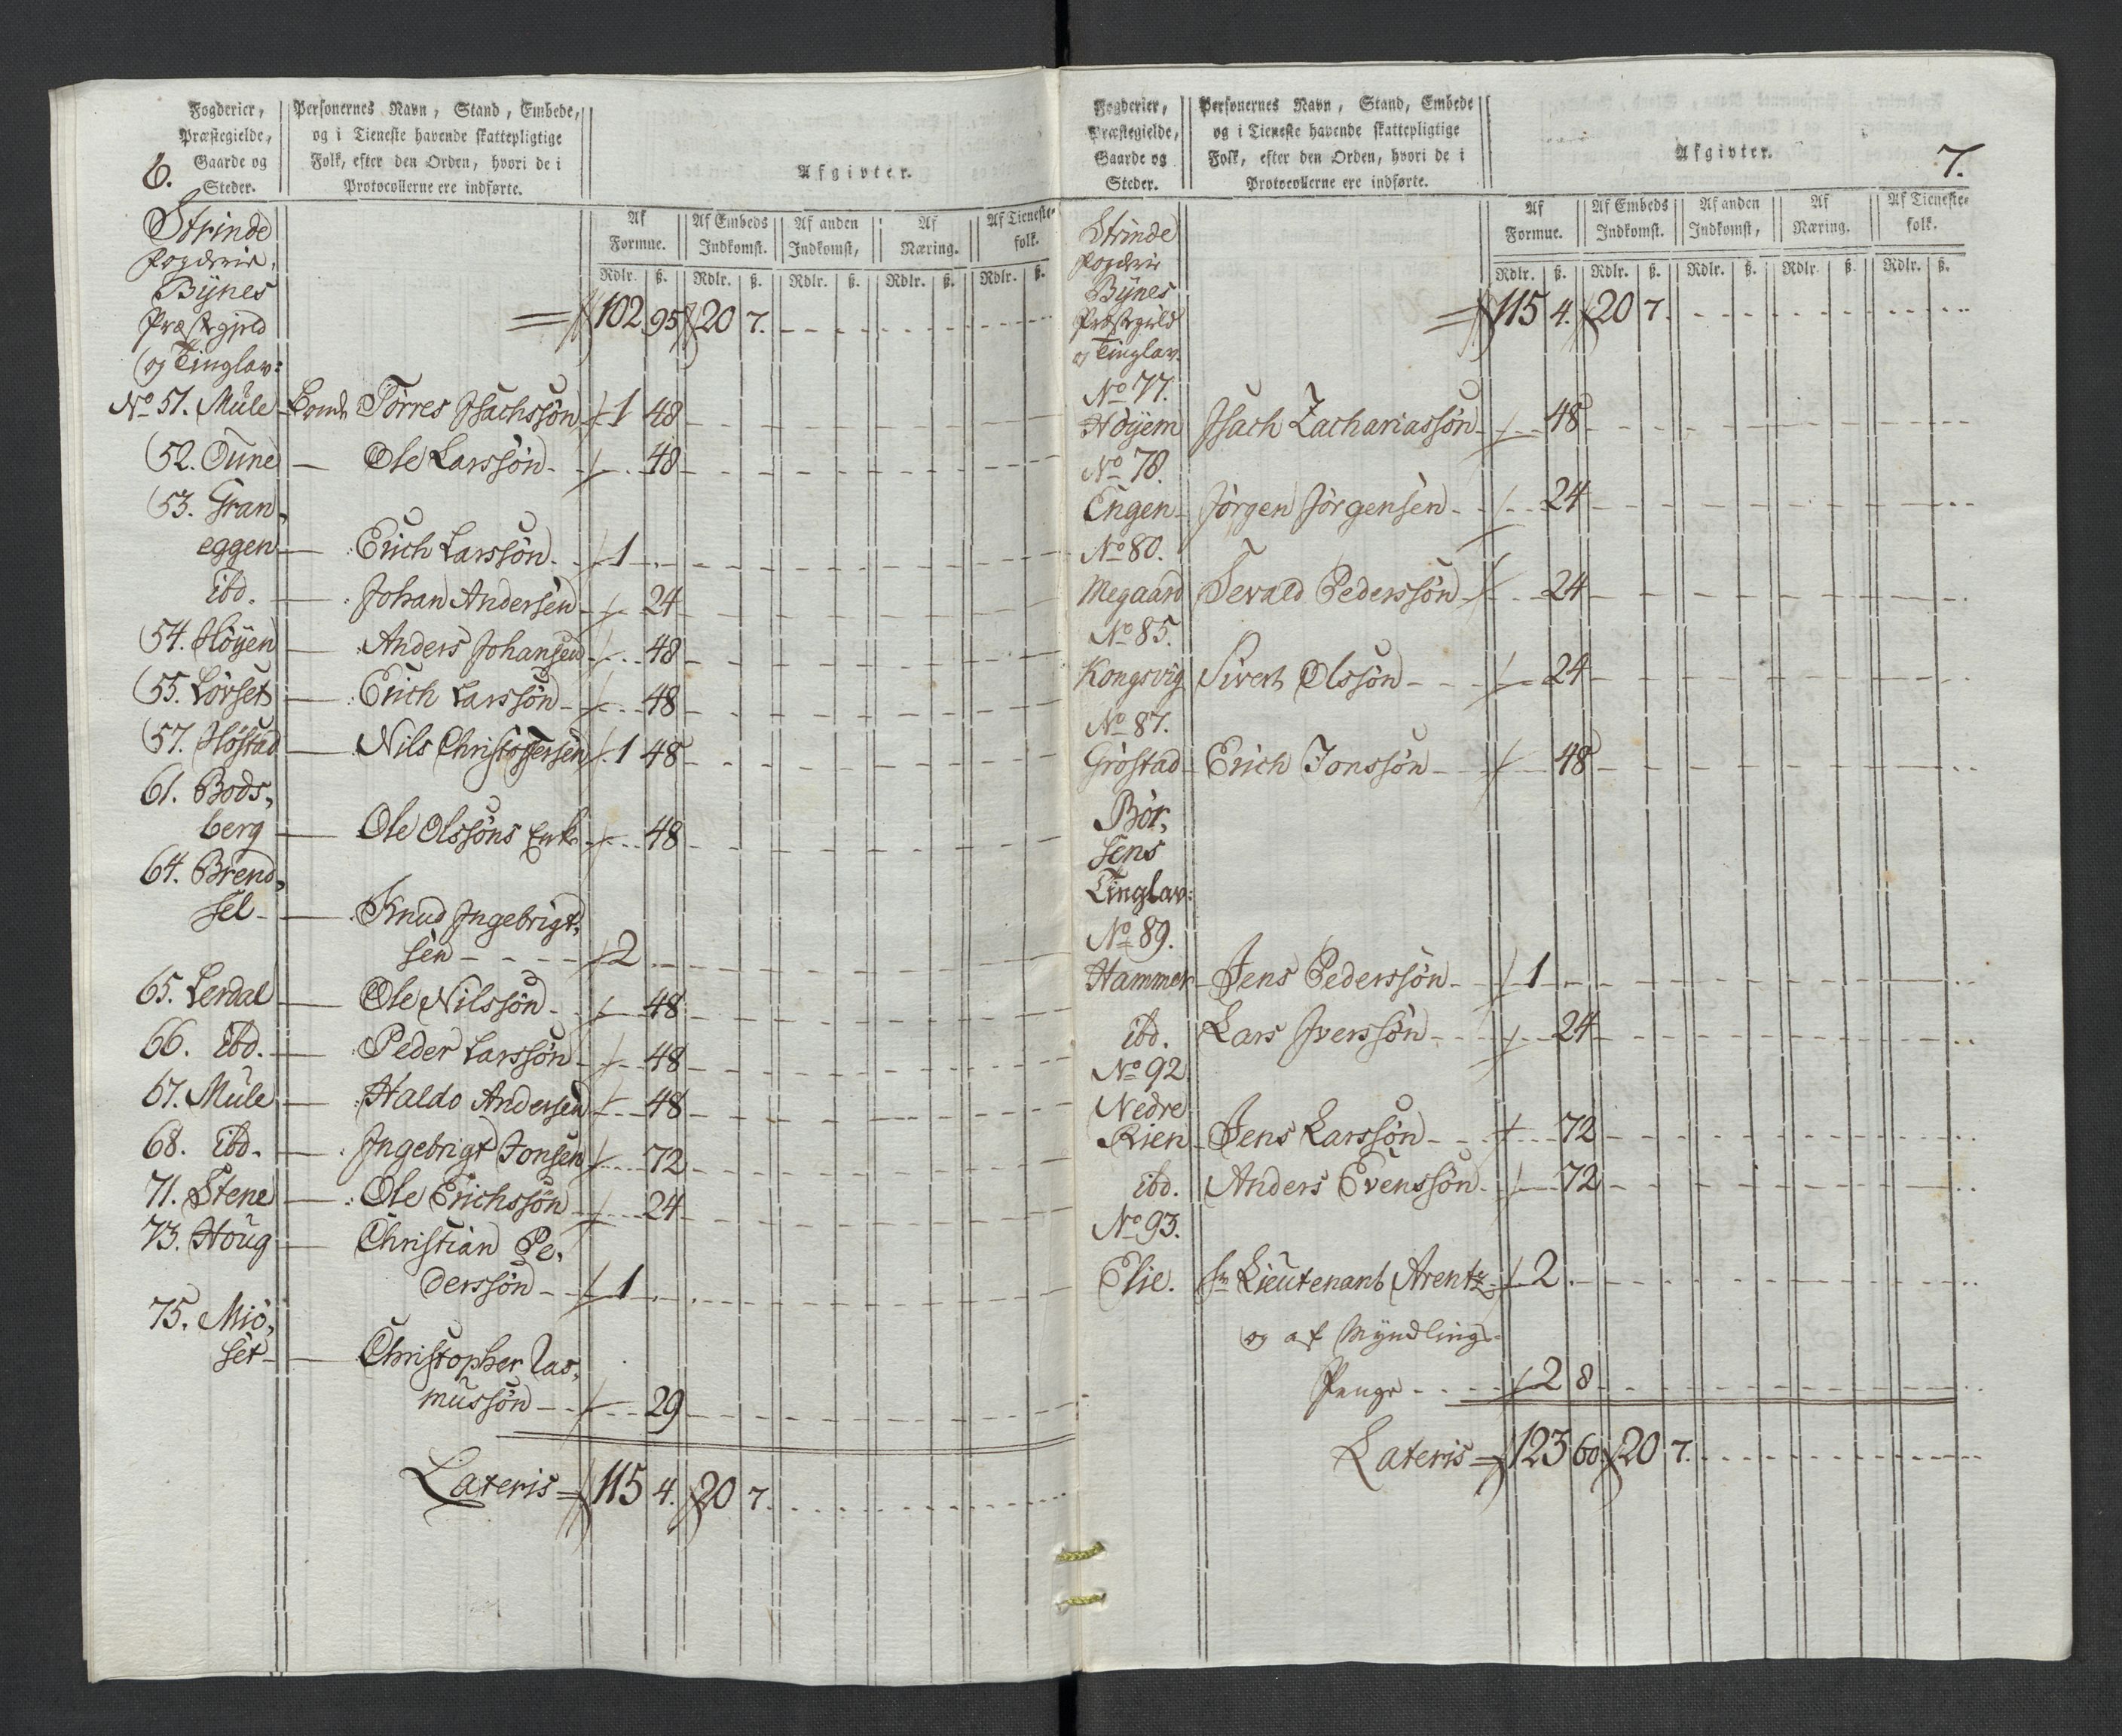 6.
Fogderier, Præstegielde, Gaarde og Steder.
Personernes Navn, Stand, Embede, og i Tieneste havende skattepligtige Folk, efter den Orden, hvori de i Protocollerne ere indførte.
Afgivter.
Af Formue. Af Embeds Indkomst. Af anden Indkomst, Af Næring. Af Tieneste- folk.
Rdlr. ß. Rdlr. ß. Rdlr. ß. Rdlr. ß. Rdlr. ß.
Strinde
Fogderie,
Bÿnes
Præstegield 102 95 20 7.
og Tinglav:
No 51. Mule Torres Isachssøn 1 48
52. Tune — Ole Larssøn 48
53. Gran,
eggen — Erich Larssøn 1
ibd. — Johan Andersen 24
54. Høyen — Anders Johansen 48
55. Lørset — Erich Larssøn 48
57. Høstad — Nils Christoffersen 1 48
61. Bods,
berg — Ole Olssøns Enke 48
64. Brend,
sel — Knud Ingebrigt,
sen 2
65. Lerdal — Ole Nilssøn 48
66. ibd. — Peder Larssøn 48
67. Mule — Haldo Andersen 48
68. ibd. — Ingebrigt Jonsen 72
71. Stene — Ole Erichssøn 24
73. Houg — Christian Pe,
derssøn 1
75. Miø,
set — Christopher Ras,
mussøn 29
Lateris 115 4. 20 7.
7.
Fogderier, Præstegielde, Gaarde og Steder.
Personernes Navn, Stand, Embede og i Tieneste havende skattepligtige Folk, efter den Orden, hvori de i Protocollerne ere indførte.
Afgivter.
Af Formue. Af Embeds Indkomst. Af anden Indkomst, Af Næring. Af Tieneste- folk.
Rdlr. ß. Rdlr. ß. Rdlr. ß. Rdlr. ß. Rdlr. ß.
Strinde
Fogderie
Bÿnes
Præstegield 115 4. 20 7.
og Tinglav.
No 77.
Høyem Isach Zachariassøn 48
No 78.
Engen Jørgen Jørgensen 24
No 80.
Megaard Sevald Pederssøn 24
No 85.
Kongsvig Sivert Olssøn 24
No 87.
Grøstad Erich Jonssøn 48
Bør,
sens
Tinglav:
No 89.
Hammer Jens Pederssøn 1
ibd. Lars Iverssøn 24
No 92
Nedre
Rien Jens Larssøn 72
ibd. Anders Evenssøn 72
No 93.
Elie. Hr Lieutenant Arentz 2
og af Myndlings-
Penge 2 8
Lateris 123 60. 20 7.